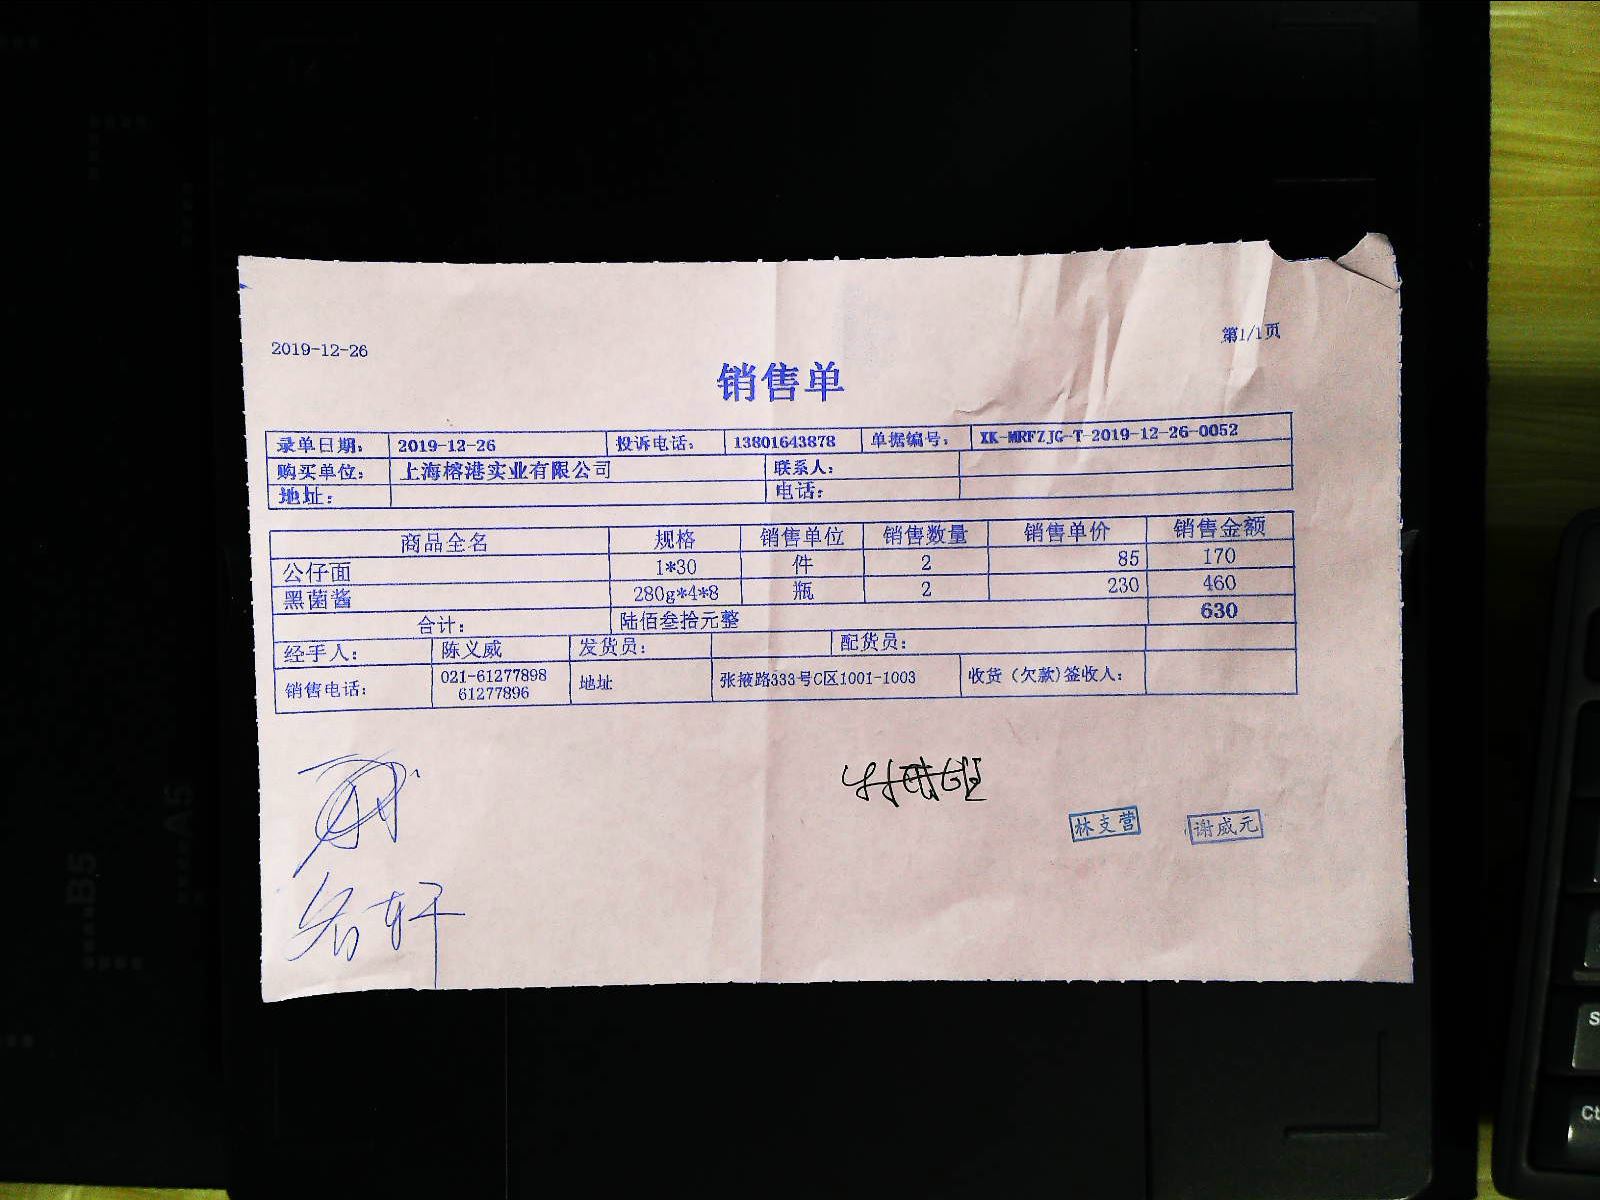 2019-12-26
第1/1页
销售单
录单日期: 2019-12-26 投诉电话: 13801643878 单据编号: XK-MRFZJG-T-2019-12-26-0052
购买单位: 上海榕港实业有限公司 联系人:
地址: 电话:
商品全名 规格 销售单位 销售数量 销售单价 销售金额
公仔面 1*30 件 2 85 170
黑菌酱 280g*4*8 瓶 2 230 460
合计: 陆佰叁拾元整 630
经手人: 陈义威 发货员: 配货员:
销售电话: 021-61277898 地址 张掖路333号C区1001-1003 收货（欠款)签收人:
61277896
林支营 谢威元
A5
B5